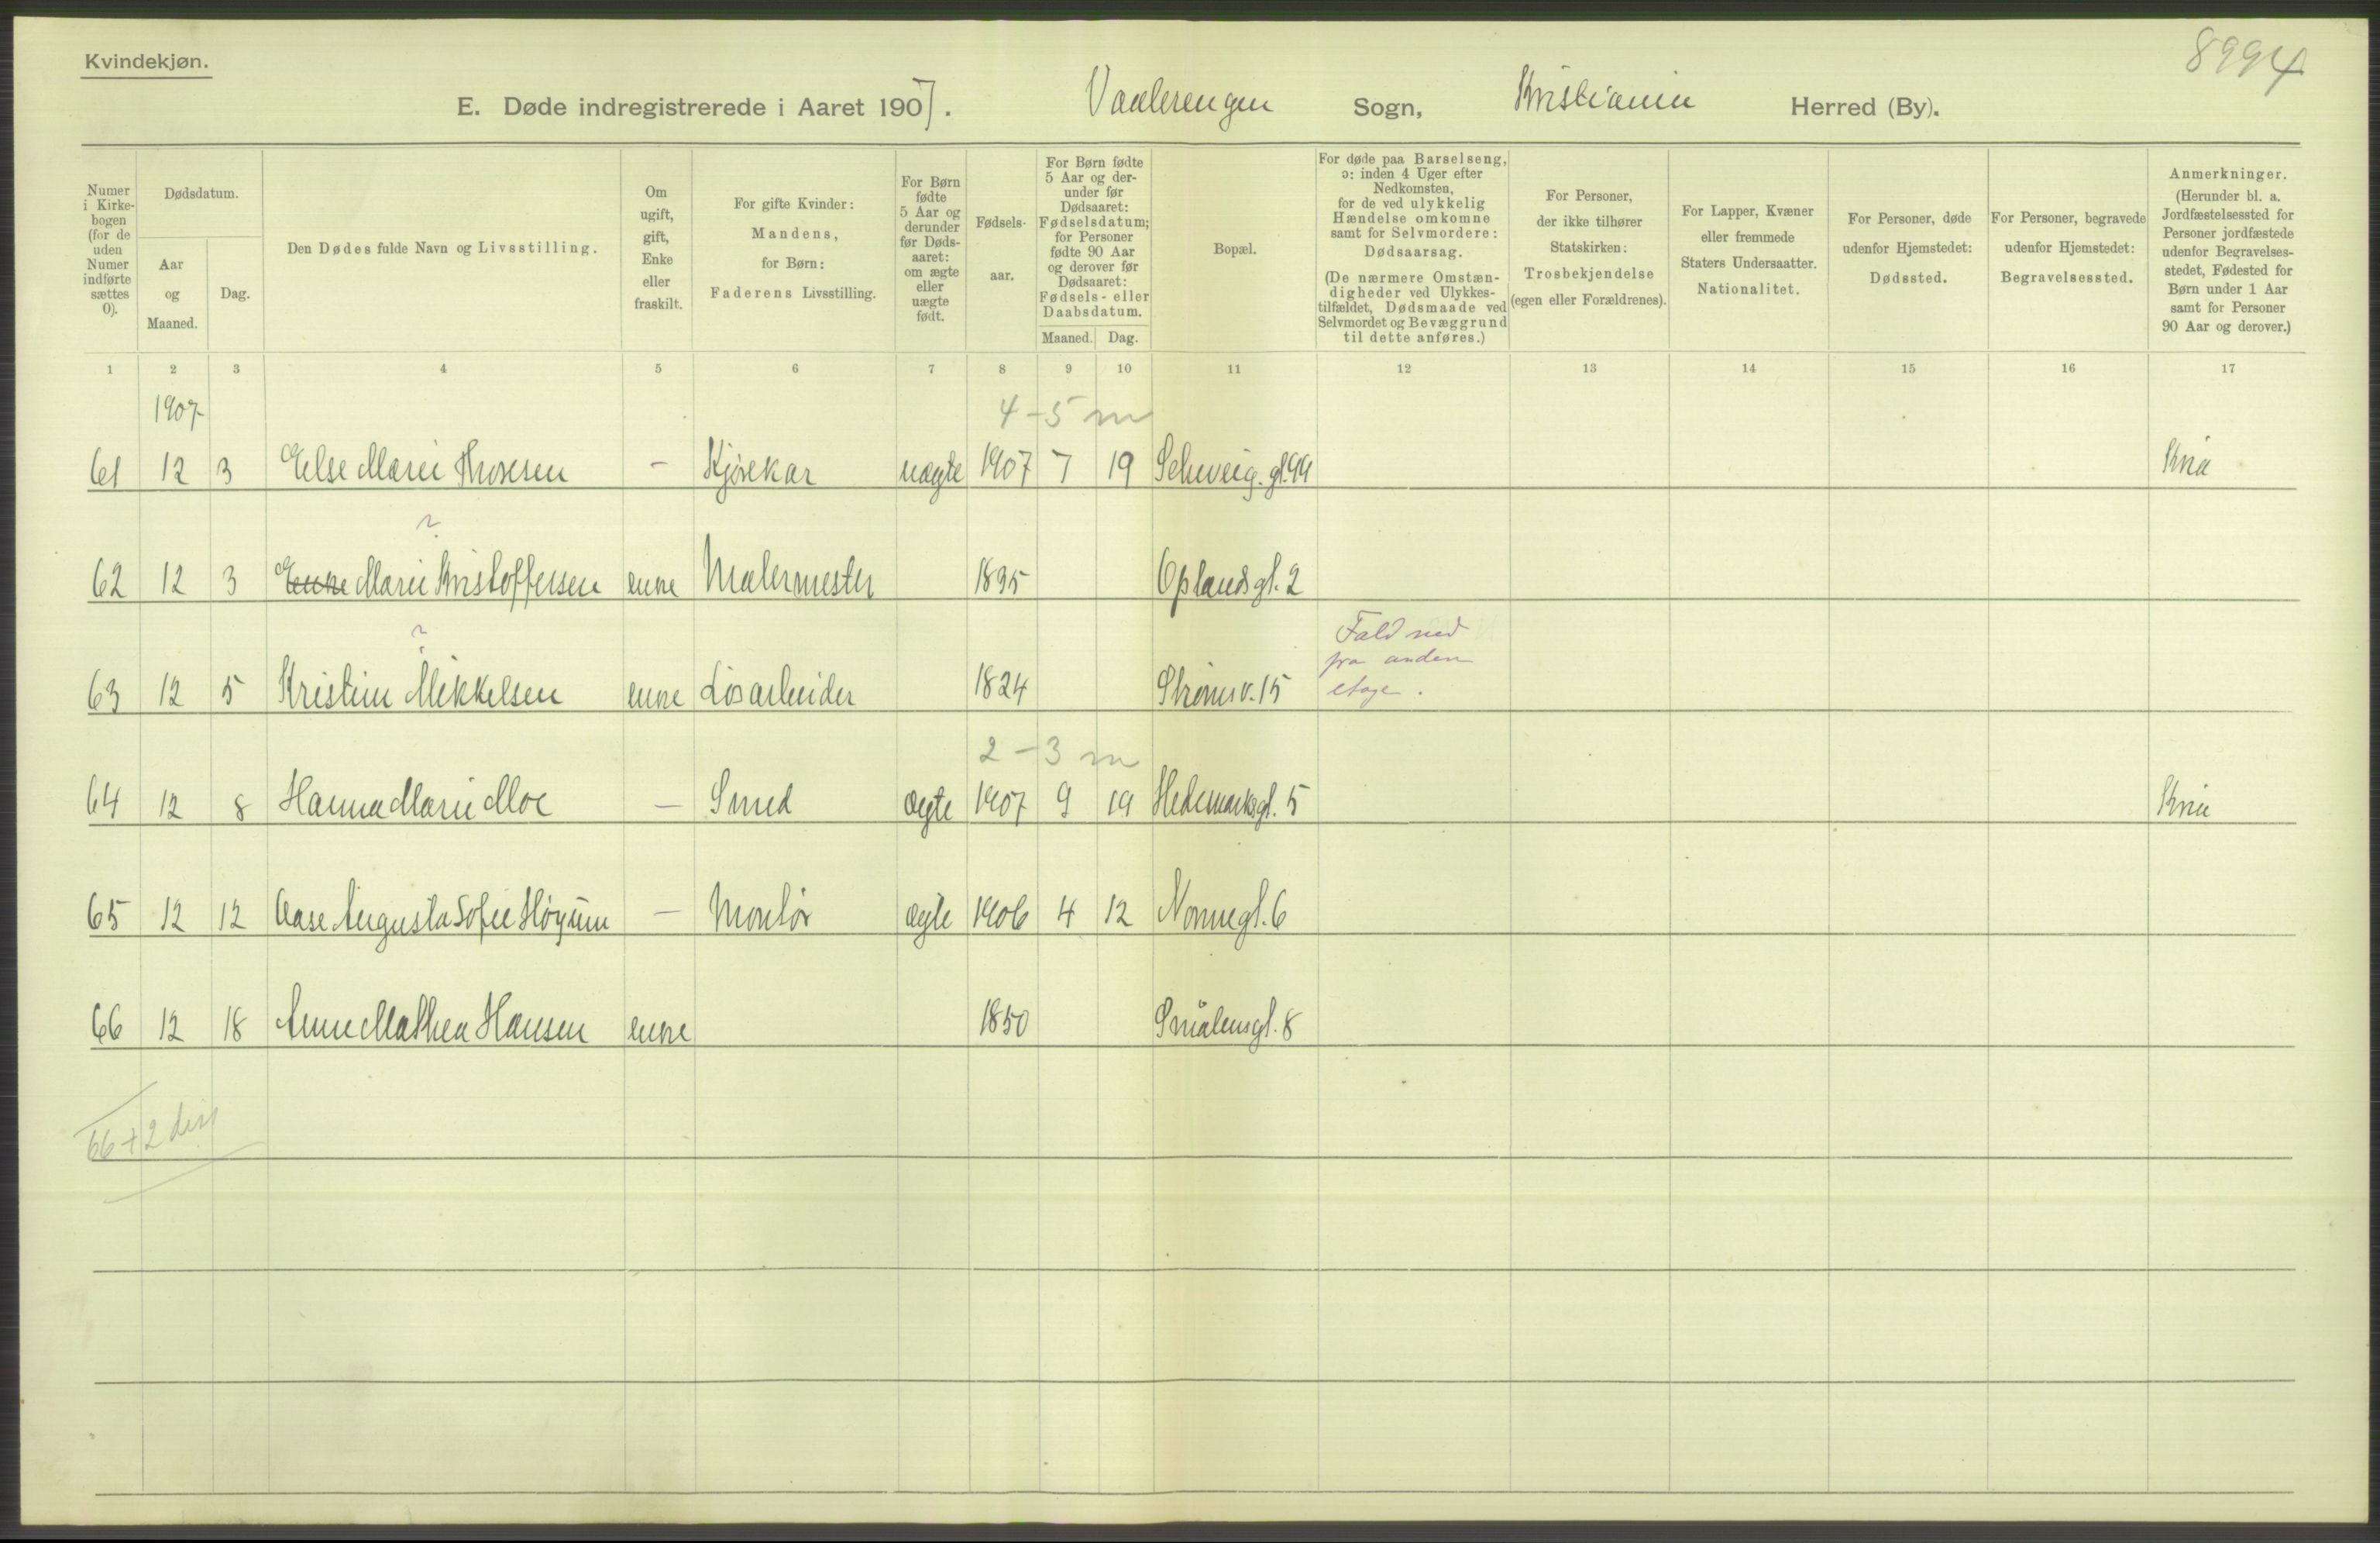 Kvindekjøn.
8994
E. Døde indregistrerede i Aaret 1907. Vaalerengen Sogn, Kristiania Herred (By).
Numer i Kirkebogen (for de uden Numer indførte sættes 0).
Dødsdatum.
Aar og Maaned.
Dag.
Den Dødes fulde Navn og Livsstilling.
Om ugift, gift, Enke eller fraskilt.
For gifte Kvinder: Mandens, for Børn: Faderens Livsstilling.
For Børn fødte 5 Aar og derunder før Dødsaaret: om ægte eller uægte født.
Fødsels-aar.
For Børn fødte 5 Aar og derunder før Dødsaaret: Fødselsdatum; for Personer fødte 90 Aar og derover før Dødsaaret: Fødsels- eller Daabsdatum.
Maaned. Dag.
Bopæl.
For døde paa Barselseng, ɔ: inden 4 Uger efter Nedkomsten, for de ved ulykkelig Hændelse omkomne samt for Selvmordere: Dødsaarsag.
(De nærmere Omstændigheder ved Ulykkestilfældet, Dødsmaade ved Selvmordet og Bevæggrund til dette anføres.)
For Personer, der ikke tilhører Statskirken: Trosbekjendelse (egen eller Forældrenes).
For Lapper, Kvæner eller fremmede Staters Undersaatter. Nationalitet.
For Personer, døde udenfor Hjemstedet: Dødssted.
For Personer, begravede udenfor Hjemstedet: Begravelsessted.
Anmerkninger.
(Herunder bl. a. Jordfæstelsessted for Personer jordfæstede udenfor Begravelsesstedet, Fødested for Børn under 1 Aar samt for Personer 90 Aar og derover.)
1 2 3 4 5 6 7 8 9 10 11 12 13 14 15 16 17
1907 4-5 m
61 12 3 Else Marie Thoresen - Kjørekar uægte 1907 7 19 Schweig. gt. 99 Kria
?
62 12 3 Enke Marie Kristoffersen enke Malermester 1835 Oplandsgt. 2
?
63 12 5 Kristine Mikkelsen enke Løsarbeider 1824 Strømsv. 15 Fald ned
fra anden
etage.
2-3 m
64 12 8 Hanna Marie Moe - Smed ægte 1907 9 19 Hedemarksgt. 5 Kria
65 12 12 Aase Augusta Sofie Høyum - Montør ægte 1906 4 12 Nonnegt. 6
66 12 18 Anne Mathea Hansen enke 1850 Smålensgt. 8
66 + 2